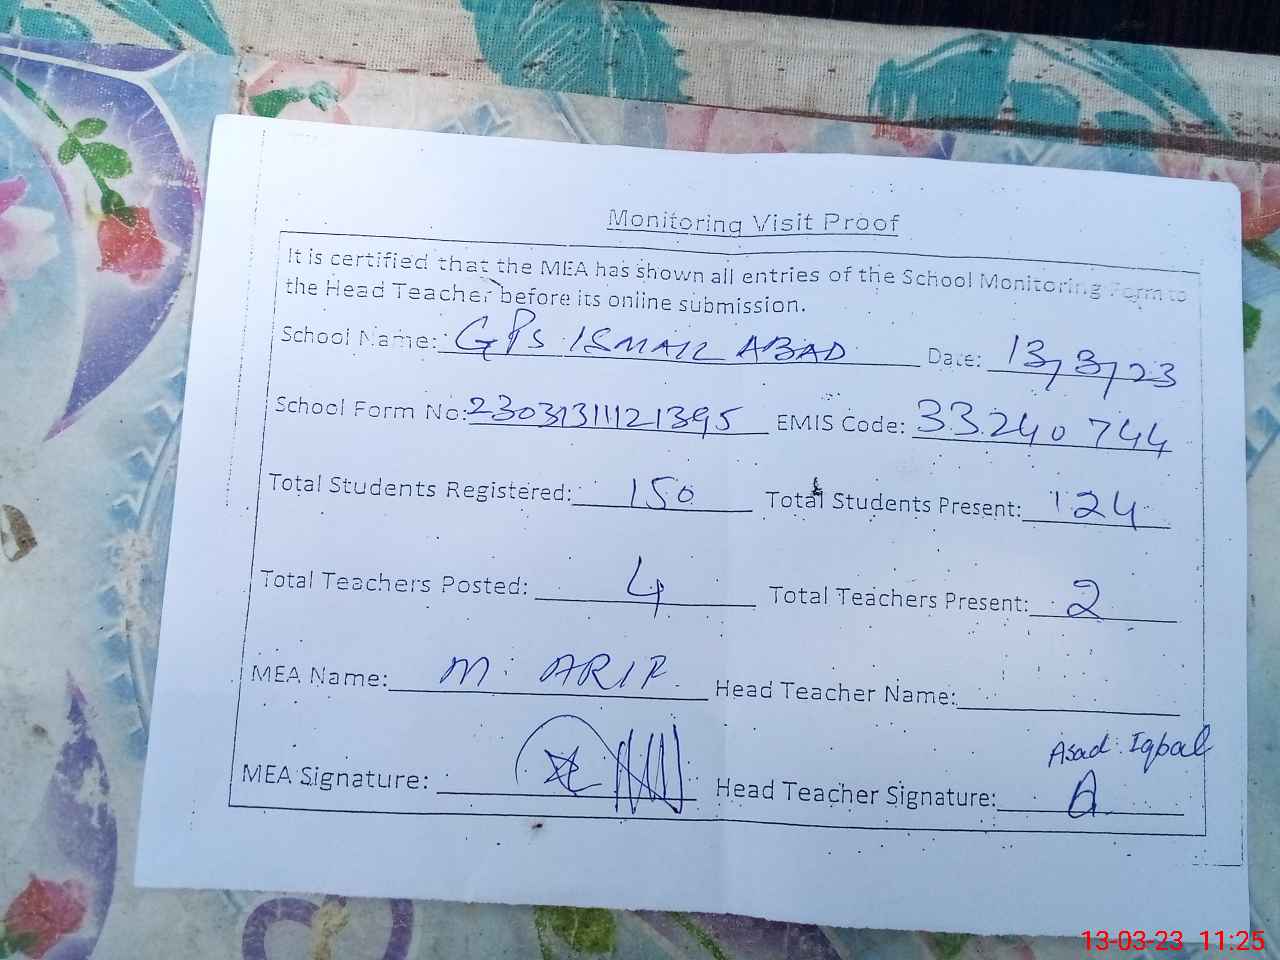 Monitoring Visit Proof
It is certified that the MEA has shown all entries of the School Monitoring Form to
the Head Teacher before its online submission.
School Name: GPS ISMAIL ABAD Date: 13/3/23
School Form No: 2303131121395 EMIS Code: 33240744
Total Students Registered: 150 Total Students Present: 124
Total Teachers Posted: 4 Total Teachers Present: 2
MEA Name: M. ARIF. Head Teacher Name:
Asad Iqbal
MEA Signature: Head Teacher Signature:
13-03-23 11:25